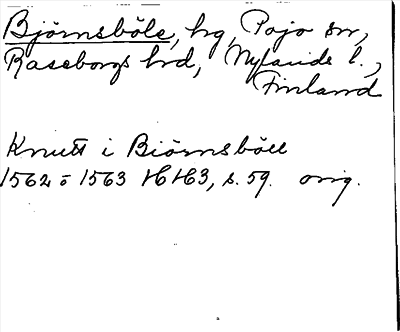 Björnsböle, hg, Pojo sn,
Raseborgs hrd, Nylands l.,
Finland
Knutt i Biörnsböll
1562 o 1563 HH3, s. 59. orig.